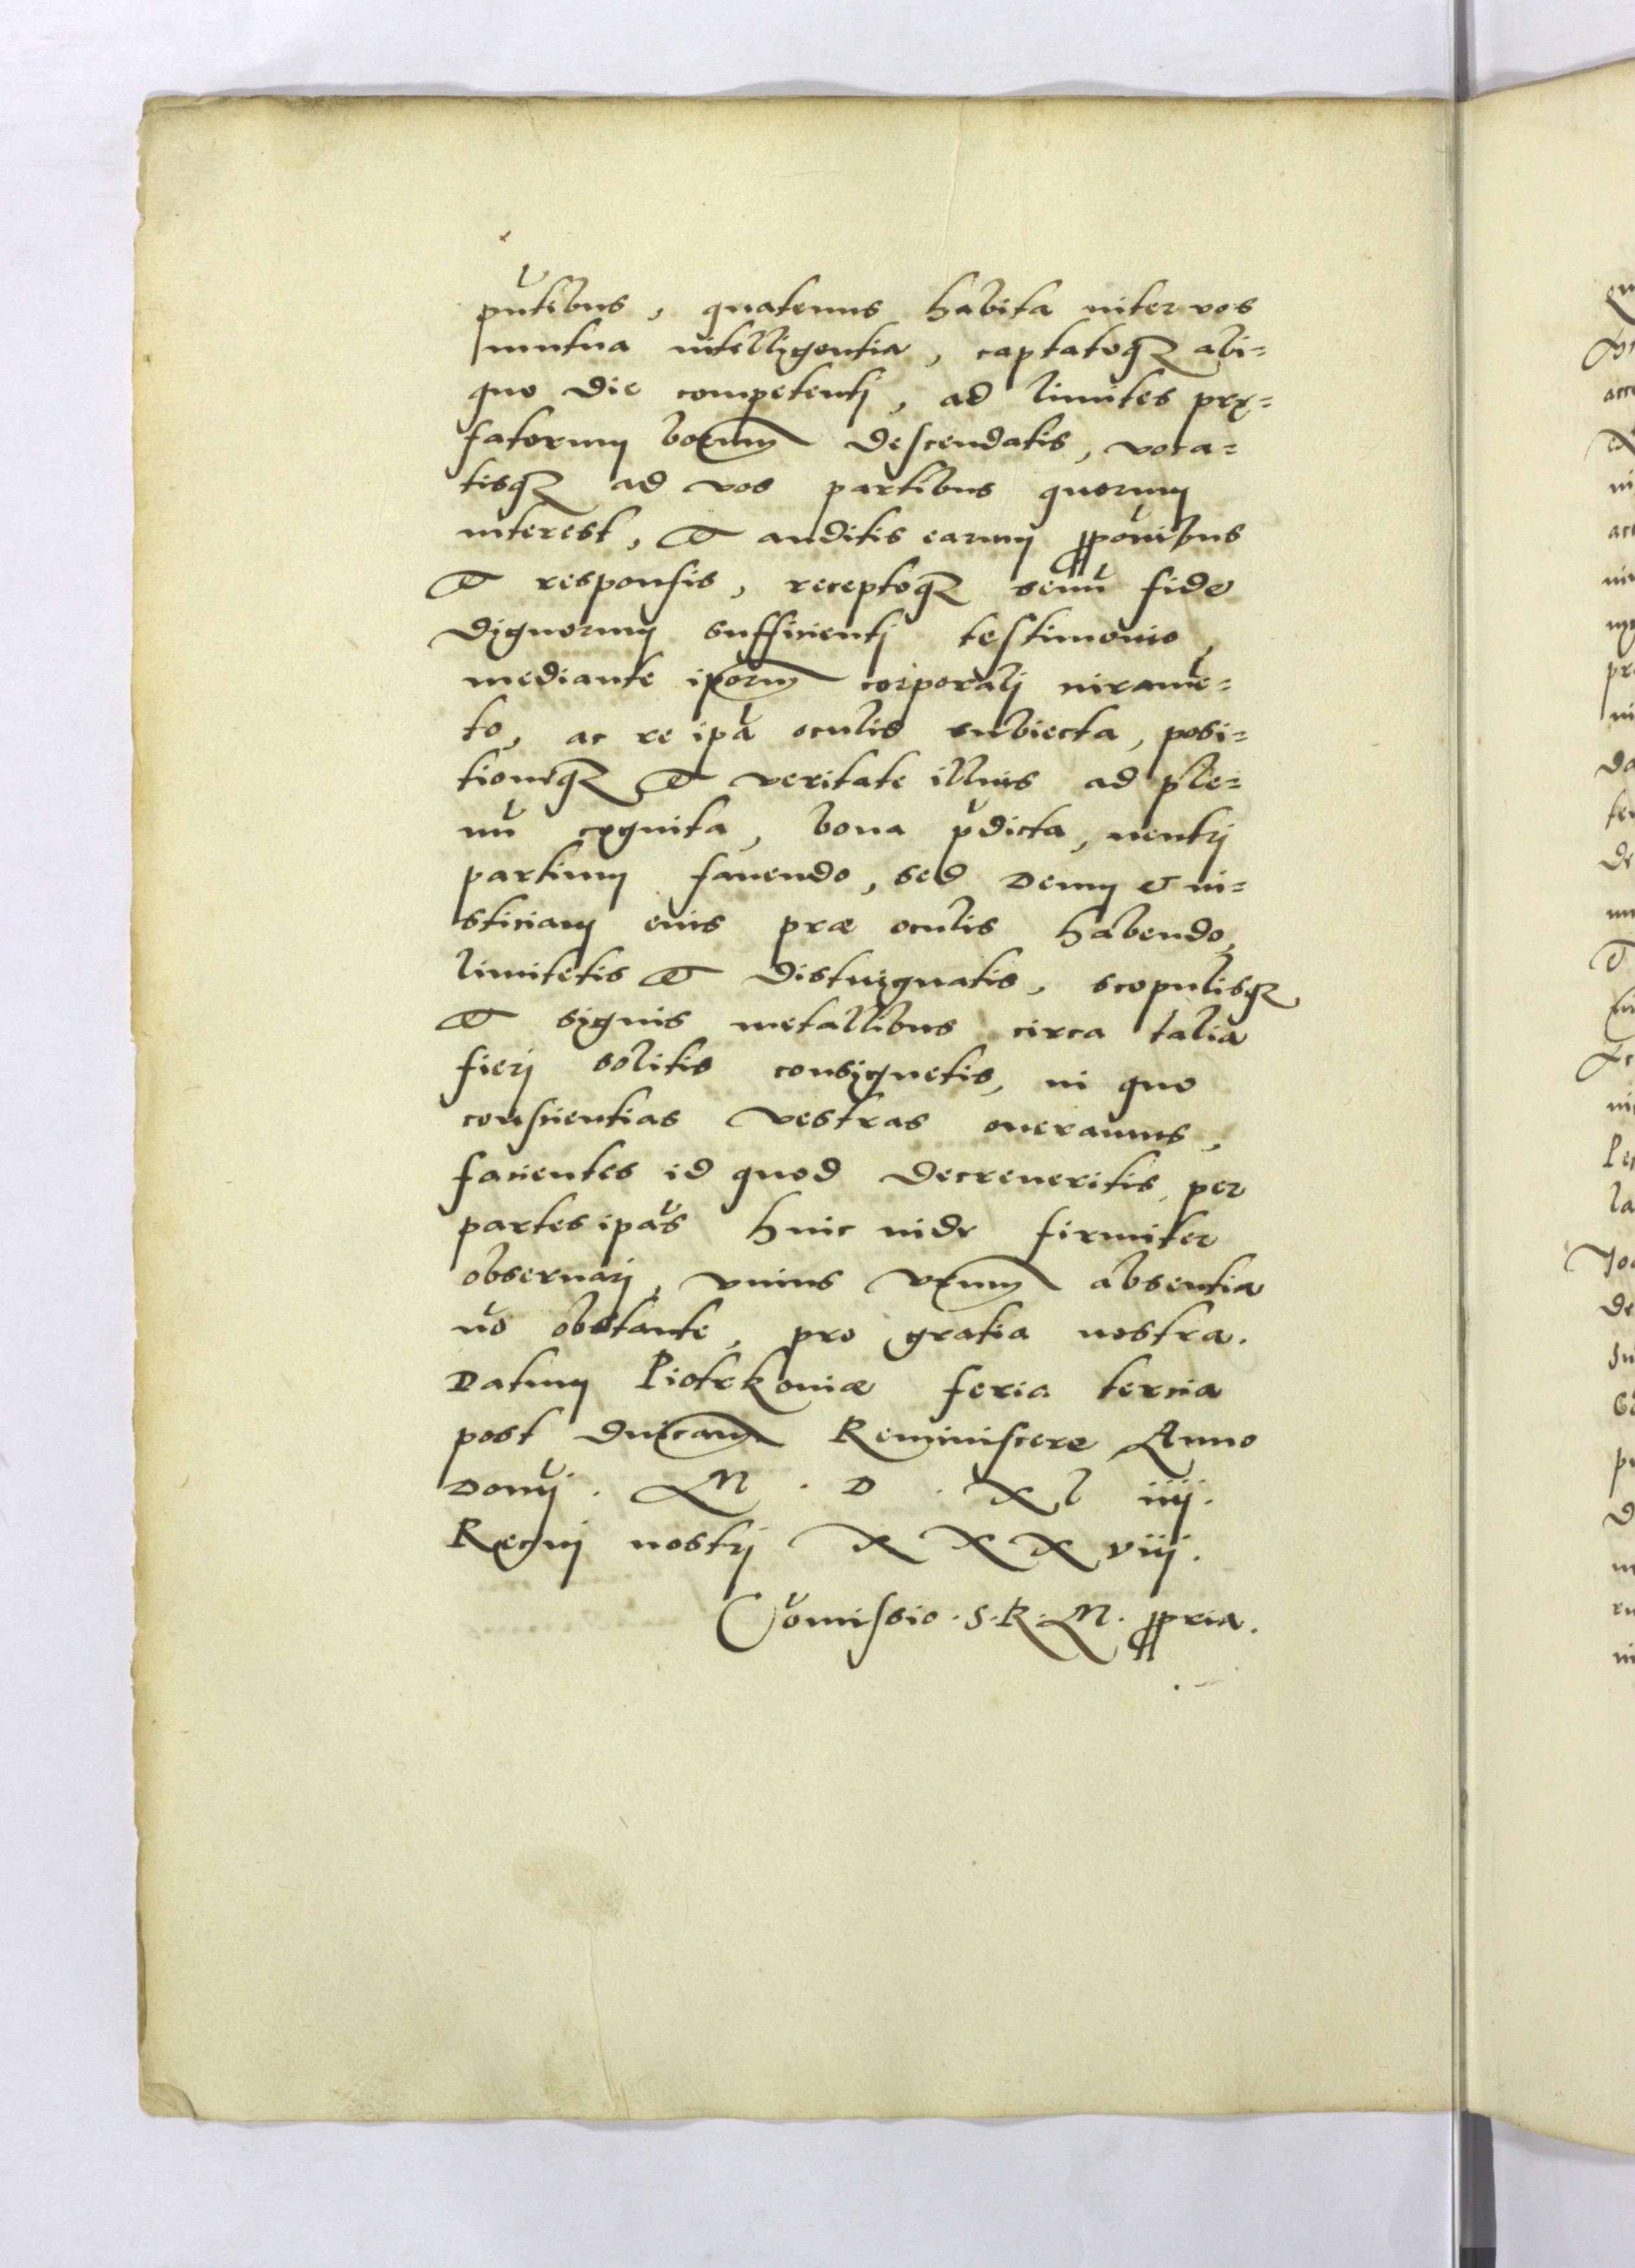 pñtibus, quatenus habita inter vos
mutua intelligentia, captatoqꝫ ali=
quo die competentj, ad limites prę=
fatorum bonorum descendatis, voca=
tisqꝫ ad vos partibus quorum
interest, & auditis earum ꝓpõnibus
& responsis, receptoqꝫ seniũ fide
dignorum sufficientj testimonio,
mediante ip̃orum corporalj iuramẽ=
to, ac re ip̃a oculis subiecta, posi=
tioneqꝫ & veritate illius ad ple=
nũ cognita, bona p̃dicta, neutrj
partium fauendo, sed Deum & iu=
sticiam eius præ oculis habendo,
limitetis & distinguatis, scopulisqꝫ
& signis metallibus circa talia
fierj solitis consignetis, in quo
conscientias vestras oneramus,
facientes id quod decreueritis, per
partes ip̃as huic inde firmiter
obseruarj, vnius vr̃um absentia
nõ obstante, pro gratia nostra.
Datum Piotrkoviæ feria tercia
post dnicam Reminiscere Anno
Domĩj. M. D. XL iiij.
Regnj nostrj XXXviij.
Com̃issio. S. R. M. ꝓpria.